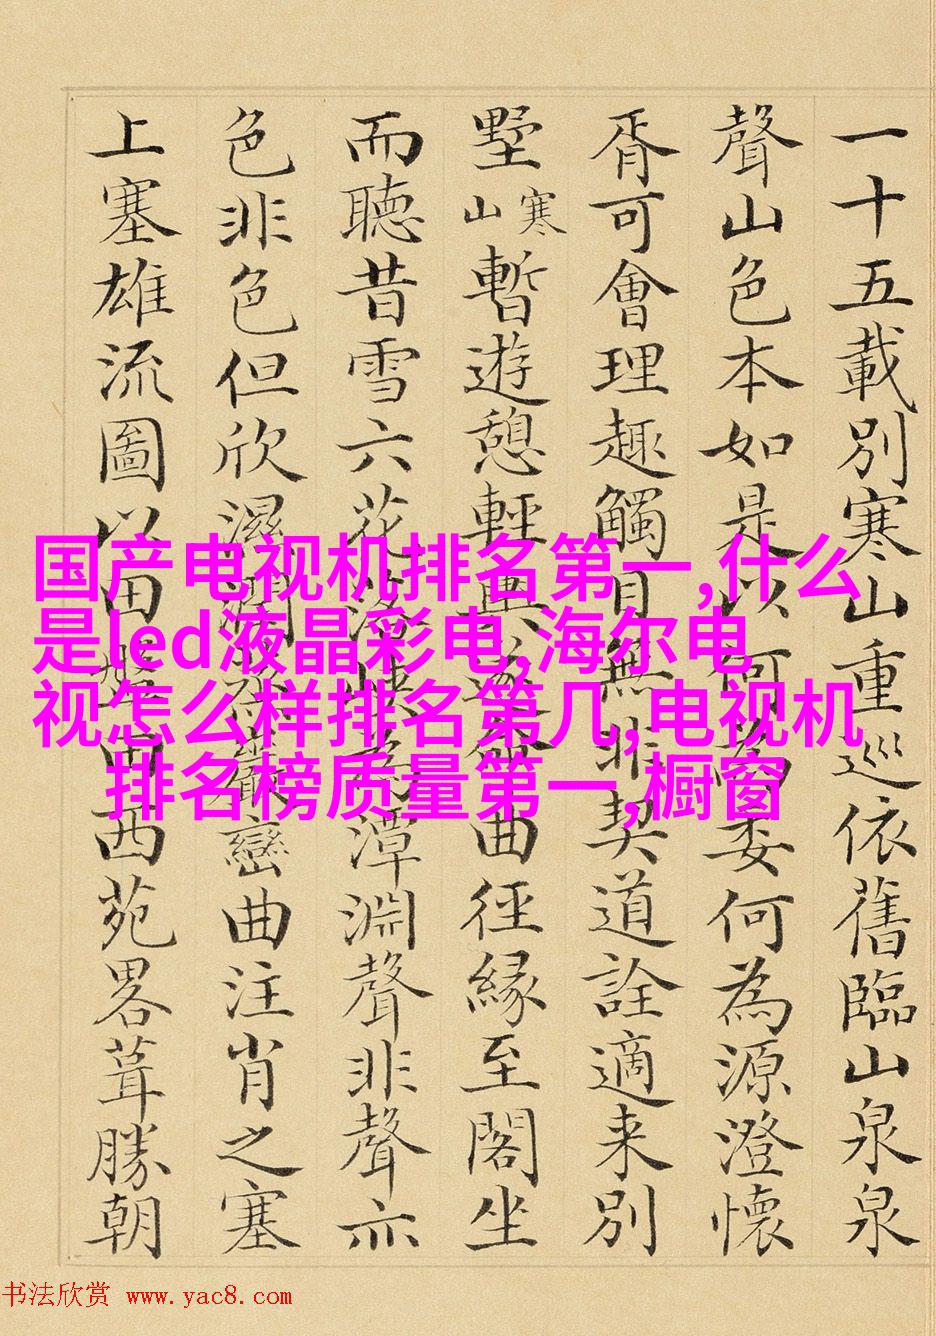 一十五載別寒山重巡依舊臨山泉泉
聲山色本如是以何為委何為源澄懷
胥可會理趣觸目無非契道詮適来別
墅寒山暫遊憩輕輿曲徑緣至閣坐
而聽昔雪六花潭淵聲非聲亦
色非色但欣濕潤巒曲注肖之塞
上塞雄流圖以田西苑畧葺勝朝
国产电视机排名第一,什么
是led液晶彩电,海尔电
视怎么样排名第几,电视机
排名榜质量第一,橱窗
书法欣赏 www.yac8.com